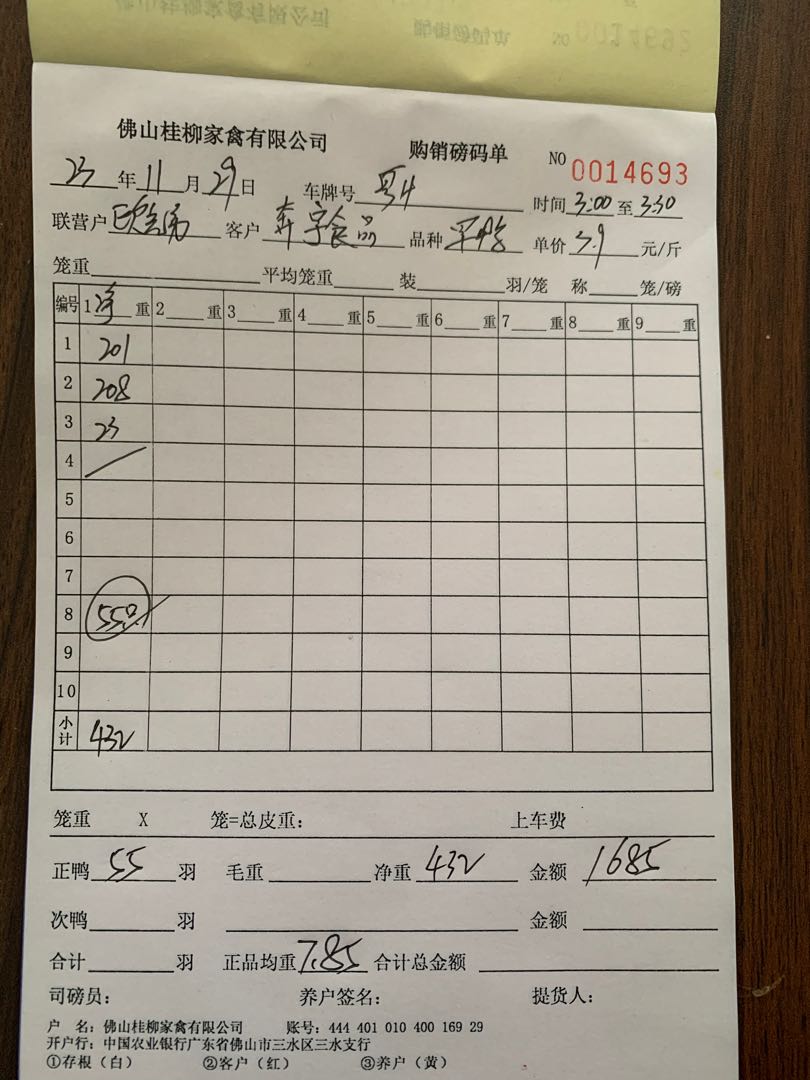 佛山桂柳家禽有限公司 购销磅码单 NO 0014693
23 年 11 月 29 日 车牌号 粤4 时间 3:00 至 3:30
联营户 客户 奔宇食品 品种 单价 3.9 元/斤
笼重 平均笼重 装 羽/笼 称 笼/磅
编号 1 净 重 2 重 3 重 4 重 5 重 6 重 7 重 8 重 9 重
1 201
2 208
3 23
4
5
6
7
8 55只
9
10
小计 432
笼重 X 笼=总皮重: 上车费
正鸭 55 羽 毛重 净重 432 金额 1685
次鸭 羽 金额
合计 羽 正品均重 7.85 合计总金额
司磅员: 养户签名: 提货人:
户 名: 佛山桂柳家禽有限公司 账号: 444 401 010 400 169 29
开户行: 中国农业银行广东省佛山市三水区三水支行
①存根(白) ②客户(红) ③养户(黄)